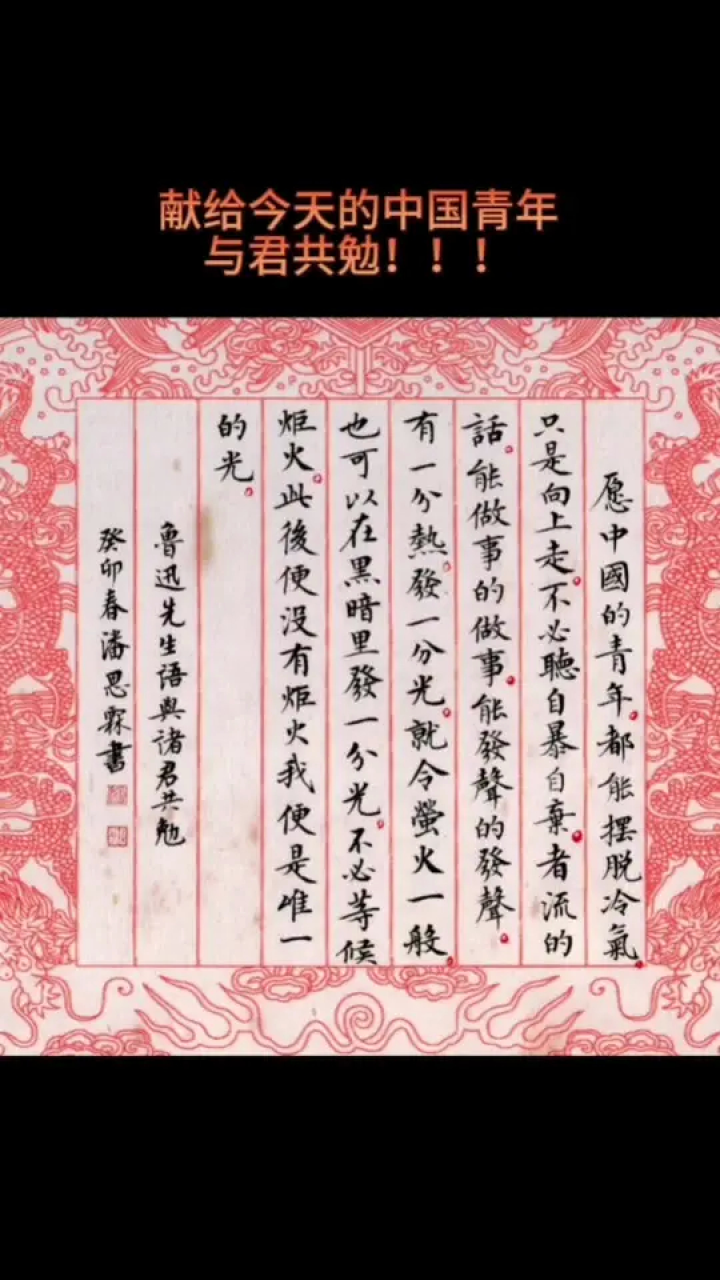 献给今天的中国青年
与君共勉！！！
愿中國的青年都能摆脱冷氣
只是向上走不必聽自暴自棄者流的
話能做事的做事能發聲的發聲
有一分熱發一分光就令螢火一般
也可以在黑暗里發一分光不必等候
炬火此後便没有炬火我便是唯一
的光
魯迅先生語與諸君共勉
癸卯春潘思霖書